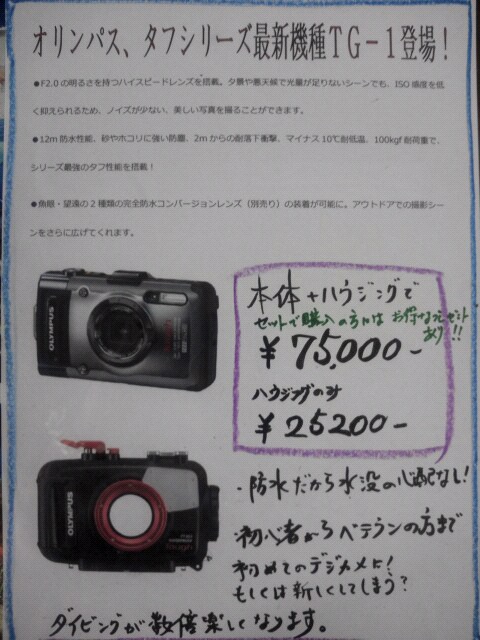 オリンパス、タフシリーズ最新機種TG－1登場！
●F2.0の明るさを持つハイスピードレンズを搭載。夕景や悪天候で光量が足りないシーンでも、ISO感度を低
く抑えられるため、ノイズが少ない、美しい写真を撮ることができます。
●12m防水性能、砂やホコリに強い防塵、2mからの耐落下衝撃、マイナス10℃耐低温、100kgf耐荷重で、
シリーズ最強のタフ性能を搭載！
●魚眼・望遠の2種類の完全防水コンバージョンレンズ（別売り）の装着が可能に。アウトドアでの撮影シー
ンをさらに広げてくれます。
本体＋ハウジングで
セットで購入の方には お得なプレゼント
あり!!
¥75,000-
ハウジングのみ
¥25200-
OLYMPUS
OLYMPUS
Tough
・防水だから水没の心配なし！
初心者からベテランの方まで
初めてのデジカメに！
もしくは新しくしてしまう？
ダイビングが数倍楽しくなります。